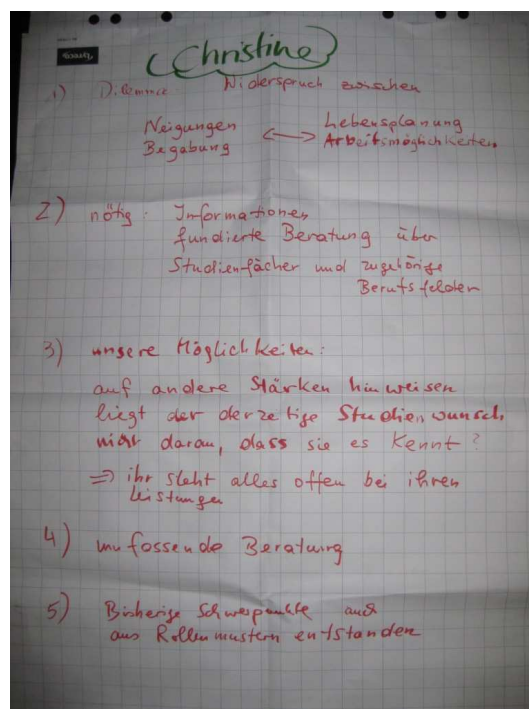 Christine
1) Dilemma Widerspruch zwischen
Neigungen <--> Lebensplanung
Begabung Arbeitsmöglichkeiten
2) nötig: Informationen,
fundierte Beratung über
Studienfächer und zugehörige
Berufsfelder
3) unsere Möglichkeiten:
auf andere Stärken hinweisen
liegt der derzeitige Studienwunsch
nicht daran, dass sie es kennt?
=> ihr steht alles offen bei ihren
Leistungen
4) umfassende Beratung
5) Bisherige Schwerpunkte auch
aus Rollenmustern entstanden